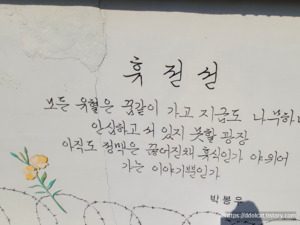 휴전선
모든 유혈은 꿈같이 가고 지금도 나무하나
안심하고 서 있지 못할 광장
아직도 정맥은 끊어진채 휴식인가 야위어
가는 이야기뿐인가
박봉우
https://ddolcat.tistory.com